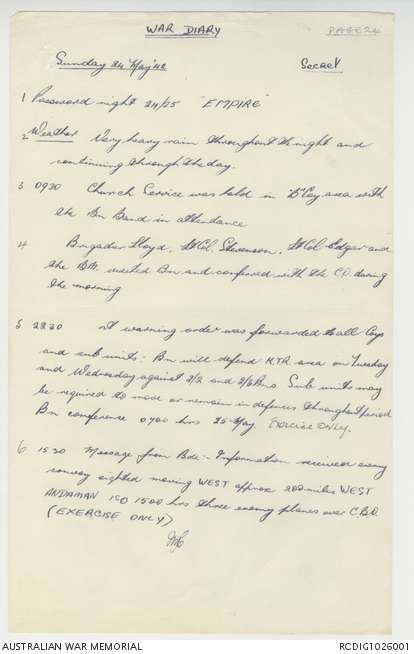 WAR DIARY
PAGE 24
Sunday 24 May '42
Secret
1 Password night 24/25 "EMPIRE"
2 Weather Very heavy rain throughout the night and
continuing through the day.
3 0930 Church Service was held in D Coy area with
the Bn Band in attendance
4 Brigadier Lloyd, Lt Col. Stevenson, Lt Col Edgar and
the BM visited Bn and conferred with the C.O. during
the morning
5 2230 warning order was forwarded to all Coys
and sub units:- Bn will defend area on Tuesday
and Wednesday against 2/2 and 2/3 Bns Sub units may
be required to move or remain in defences throughout period
Bn conference 0700 hrs 25 May Exercise ONLY.
6 1530 Message from Bde - Information received enemy
convoy sighted moving WEST approx 200 miles WEST
ANDAMAN ISD 1500 hrs three enemy planes over
(EXERCISE ONLY)
AUSTRALIAN WAR MEMORIAL
RCDIG1026001